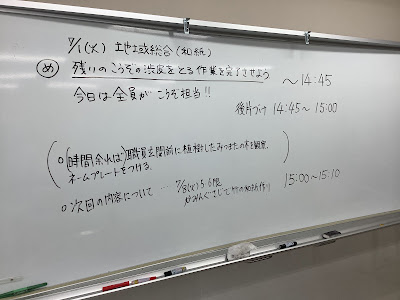 7/1(火) 地域総合(和紙)
め 残りのこうぞの渋皮をとる作業を完了させよう
～14:45
今日は全員がこうぞ担当!!
後片づけ 14:45～15:00
○(時間余れば)職員玄関前に植樹したみつまたの木を観察、
ネームプレートをつける。
○次回の内容について… 7/8(火)5.6限
15:00～15:10